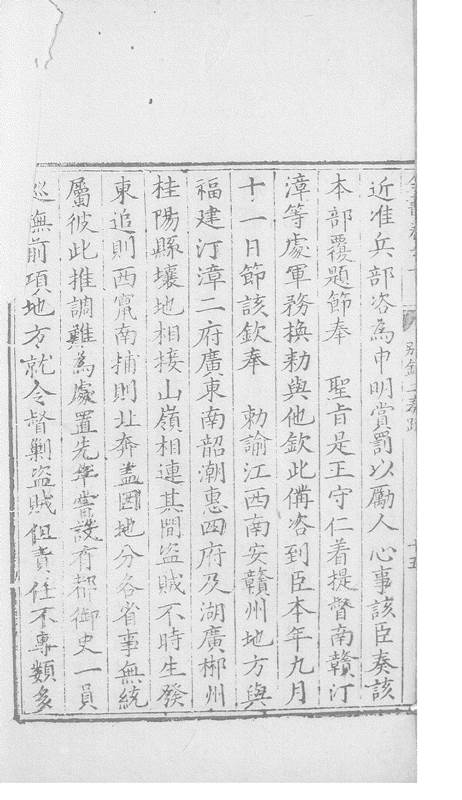 近准兵部咨為申明賞罰以勵人心事該臣奏該
本部覆題節奉 聖旨是王守仁着提督南贛汀
漳等處軍務換勑與他欽此備咨到臣本年九月
十一日節該欽奉 勅諭江西南安贛州地方與
福建汀漳二府廣東南韶潮惠四府及湖廣郴州
桂陽縣壤地相接山嶺相連其間盜賊不時生發
東追則西竄南捕則北奔蓋因地分各省事無統
屬彼此推調難為處置先年嘗設有都御史一員
巡撫前項地方就令督剿盜賊但責任不專類多